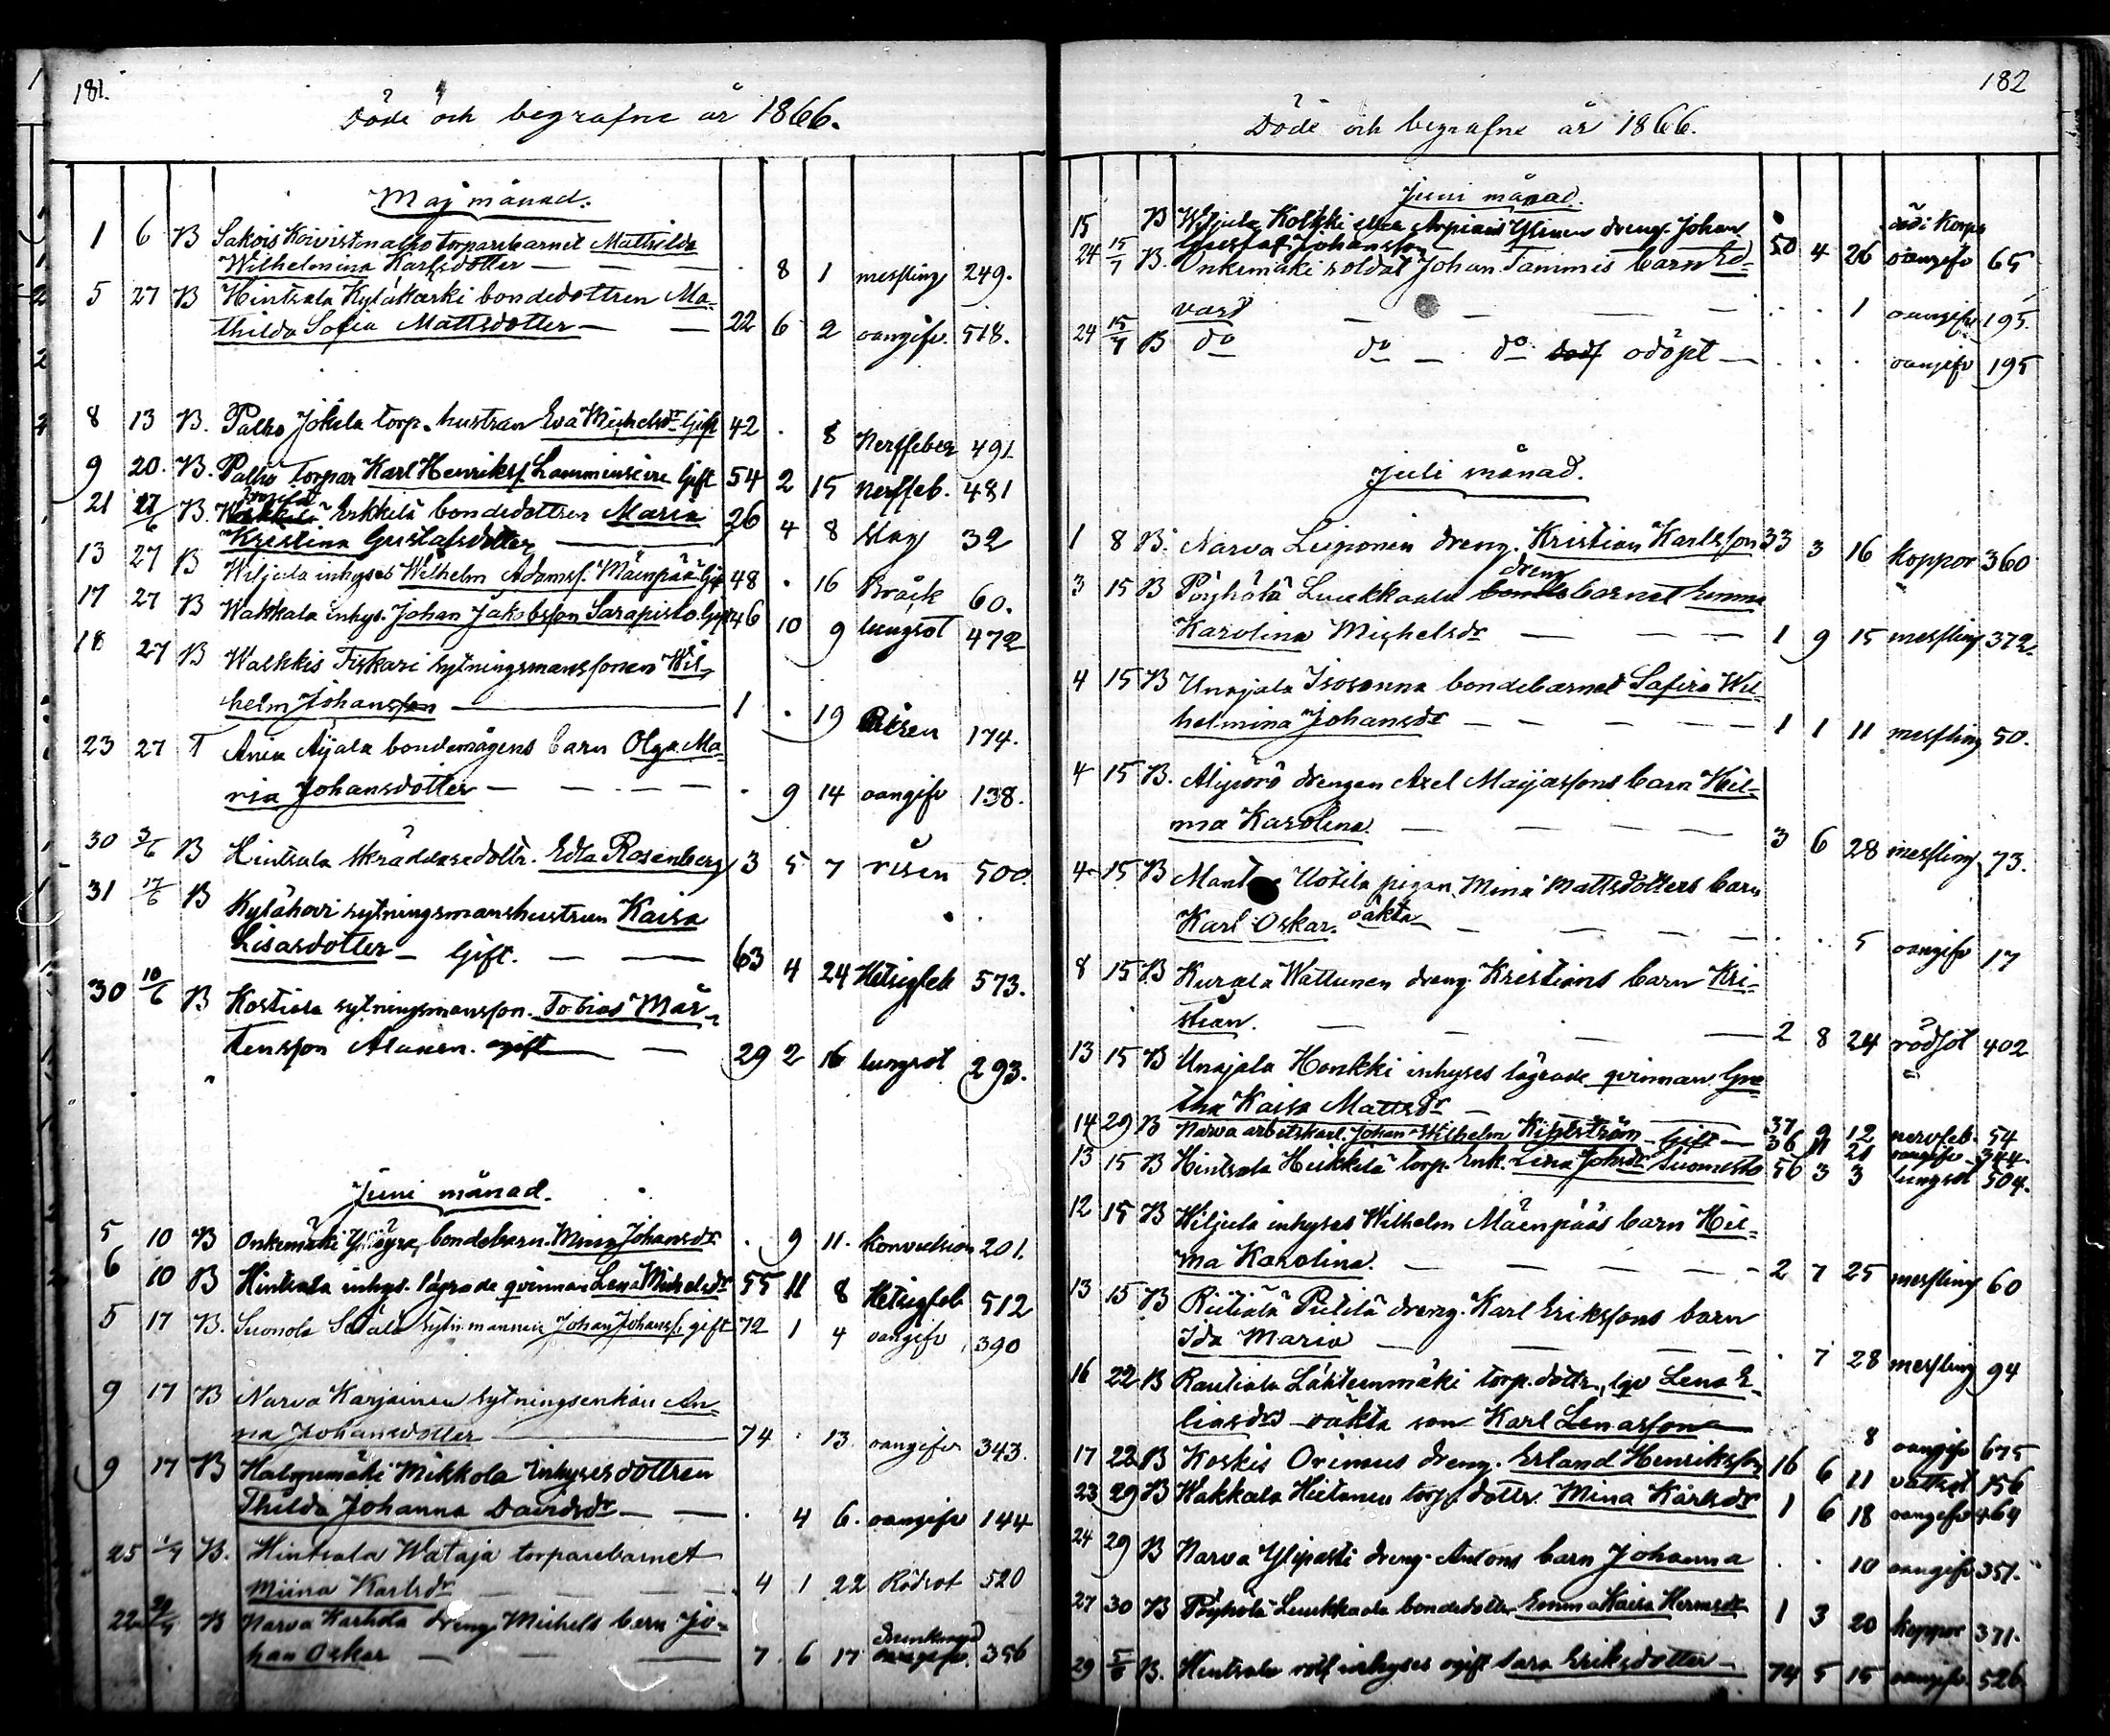 181.
Döde och begrafne år 1866.
Maj månad.
1 6 B Sakois Koivistonalho torparebarnet Mathilda
Wilhelmina Karlsdotter — . 8 1 messling 249.
5 27 B Hintsala Kyläkarki bondedottren Ma-
thilda Sofia Mattsdotter — 22 6 2 oangifv. 518.
8 13 B. Palho Jokela torp. hustrun Eva Michelsdr Gift 42 . 8 Nerffeber 491
9 20. B. Palho torpar Karl Henriksf. Lamminseire Gift 54 2 15 nerffeb. 481
21 17/6 B. Erkkilä bondedottren Maria 26 4 8 Slag 32
Kristina Gustafsdotter —
13 27 B Wiljala inhyses Wilhelm Adamsf. Mäenpää Gift 48 . 16 Bråck 60.
17 27 B Wakkala inhys. Johan Jakobsson Sarapisto Gift 46 10 9 lungsot 472
18 27 B Walkkis Tiskari sytningsmanssonen Wil-
helm Johansson — 1 . 19 Risen 174.
23 27 T Ania Äijala bondemågens barn Olga Ma-
ria Johansdotter — . 9 14 oangifv 138.
30 3/6 B Hintsala skräddaredottr. Edla Rosenberg 3 5 7 risen 500
31 17/6 B Kylähovi sytningsmanshustrun Kaisa
Lisasdotter — Gift. — 63 4 24 Hetsigfeb 573.
30 10/6 B Kostiala sytningsmansson. Tobias Mår-
tensson Alanen. ogift — 29 2 16 lungsot 293.
Juni månad.
5 10 B Onkemäki bondebarn. Mina Johansdr . 9 11. konvulsion 201.
6 10 B Hintsala inhys. lägrade qvinnan Lena Michelsdr 55 11 8 Hetsigfeb 512
5 17 B. Suonola Sätälä Sytn.mannen Johan Johansf. gift 72 1 4 oangifv 390
9 17 B Narva Karjainen sytningsenkan An-
na Johansdotter — 74 . 13 oangifv 343.
9 17 B Halmemäki Mikkola Inhysesdottren
Thilda Johanna Davidsdr — . 4 6. oangifv 144
25 1/7 B. Hintsala Wataja torparebarnet
Miina Karlsdr — 4 1 22 Rödsot 520
22 B Narva Karhola dreng Michels barn Jo-
han Oskar — 7 6 17 Drunknad oangifv. 356
182
Döde och begrafne år 1866.
Juni månad.
15 B Wiljala Kolkki dreng. Johan
Gustaf Johansson 50 4 26 oangifv 65
24 15/7 B. Onkemäki soldat Johan Tammis barn Ed-
vard — . . 1 oangifv 195.
24 15/7 B do do — do odöpt — . . . oangifv 195
Juli månad.
1 8 B. Narva Liiponen dreng. Kristian Karlsson 33 3 16 koppor 360
dreng
3 15 B Pöyhölä Luukkaala barnet Emma
Karolina Michelsdr — 1 9 15 messling 372.
4 15 B Unajala Isosanna bondebarnet Safira Wil-
helmina Johansdr — 1 1 11 messling 50.
4 15 B. Alisjärö drengen Axel Maijassons barn Hil-
ma Karolina. — 3 6 28 messling 73.
4 15 B Uotila pigan Mina Mattsdotters barn
Karl Oskar. oäkta — . . 5 oangifv 17
8 15 B Kurala Wattunen dreng. Kristians barn Kri-
stian. — 2 8 24 rödsot 402
13 15 B Unajala Honkki inhyses lägrade qvinnan Gre-
tha Kaisa Mattsdr — 37 9 12 nervfeb. 54
14 29 B Narva arbetskarl. Johan Wilhelm Kihlström — Gift — 36 11 21 oangifv 344.
13 15 B Hintsala Heikkilä torp. Enk. Lena Johsdr Suomesto 56 3 3 lungsot 504.
12 15 B Wiljala inhyses Wilhelm Mäenpääs barn Hil-
ma Karolina. — 2 7 25 messling 60
13 15 B Riitiala Pietilä dreng. Karl Erikssons barn
Ida Maria — . 7 28 messling 94
16 22 B Rautiala Lähteenmäki torp. dottr. lgv Lena E-
liasdrs oäkta son Karl Lenasson 8 oangifv 675
17 22 B Koskis Orimus dreng. Erland Henriksson 16 6 11 vattsot 156
23 29 B Wakkala Hietanen torp. dottr. Mina Karlsdr 1 6 18 oangifv 469
24 29 B Narva Ylipasti dreng. Antons barn Johanna . . 10 oangifv 351.
27 30 B Pöyhölä Luukkaala bondedottr. Emma Kaisa Hermsdr 1 3 20 koppor 371.
29 5/8 B. Hintsala inhyses ogift Sara Eriksdotter — 74 5 15 oangifv. 526